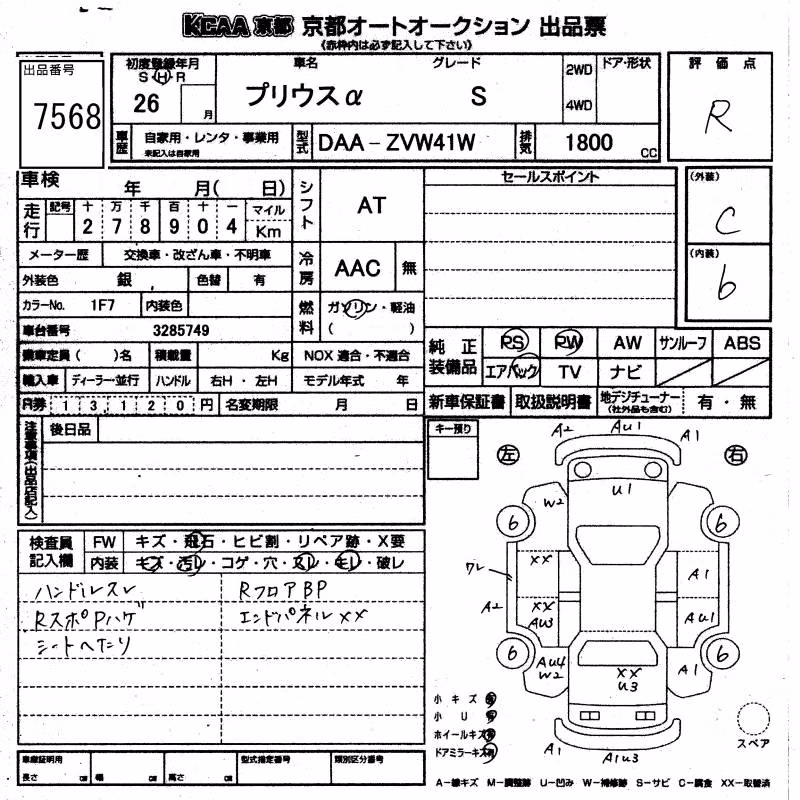 KCAA 京都 京都オートオークション 出品票
《赤枠内は必ず記入して下さい》
出品番号
7568
初度登録年月
S H R
26 月
車名 グレード
プリウスα S
2WD
4WD
ドア・形状
評価点
R
車歴 自家用・レンタ・事業用
未記入は自家用
型式 DAA－ZVW41W
排気 1800 cc
車検 年 月( 日)
走行 記号 十 万 千 百 十 一 マイル
2 7 8 9 0 4 Km
メーター歴 交換車・改ざん車・不明車
外装色 銀 色替 有
カラーNo. 1F7 内装色
車台番号 3285749
乗車定員( )名 積載量 Kg
輸入車 ディーラー・並行 ハンドル 右H・左H
円券 1 3 1 2 0 円 名変期限 月 日
シフト AT
冷房 AAC 無
燃料 ガソリン・軽油
( )
NOX 適合・不適合
モデル年式 年
セールスポイント
(外装)
C
(内装)
6
純正装備品 PS PW AW サンルーフ ABS
エアバック TV ナビ
新車保証書 取扱説明書 地デジチューナー
(社外品も含む) 有・無
注意事項(出品店記入)
後日品
キー預り
左 右
検査員記入欄
FW キズ・飛石・ヒビ割・リペア跡・X要
内装 キズ・汚レ・コゲ・穴・スレ・モレ・破レ
ハンドルスレ RフロアBP
RスポPハゲ エンドパネルXX
シートへたり
A2 AU1 A1
U1
W2
6 6
XX A1
ワレ
A2
XX
AU3 AU1
6 6
AU4
W2
XX
U3
A1
A1 A1U3
小キズ
小U
ホイールキズ
ドアミラーキズ
スペア
車庫証明用
長さ cm 幅 cm 高さ cm
型式指定番号 類別区分番号
A－線キズ M－調整跡 U－凹み W－補修跡 S－サビ C－腐食 XX－取替済